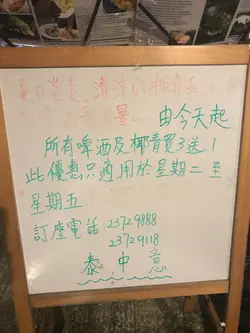 夏日炎炎，清涼的椰青
由今天起
所有啤酒及椰青買3送1
此優惠只適用於星期二至
星期五
訂座電話 23729888
23729118
泰中意